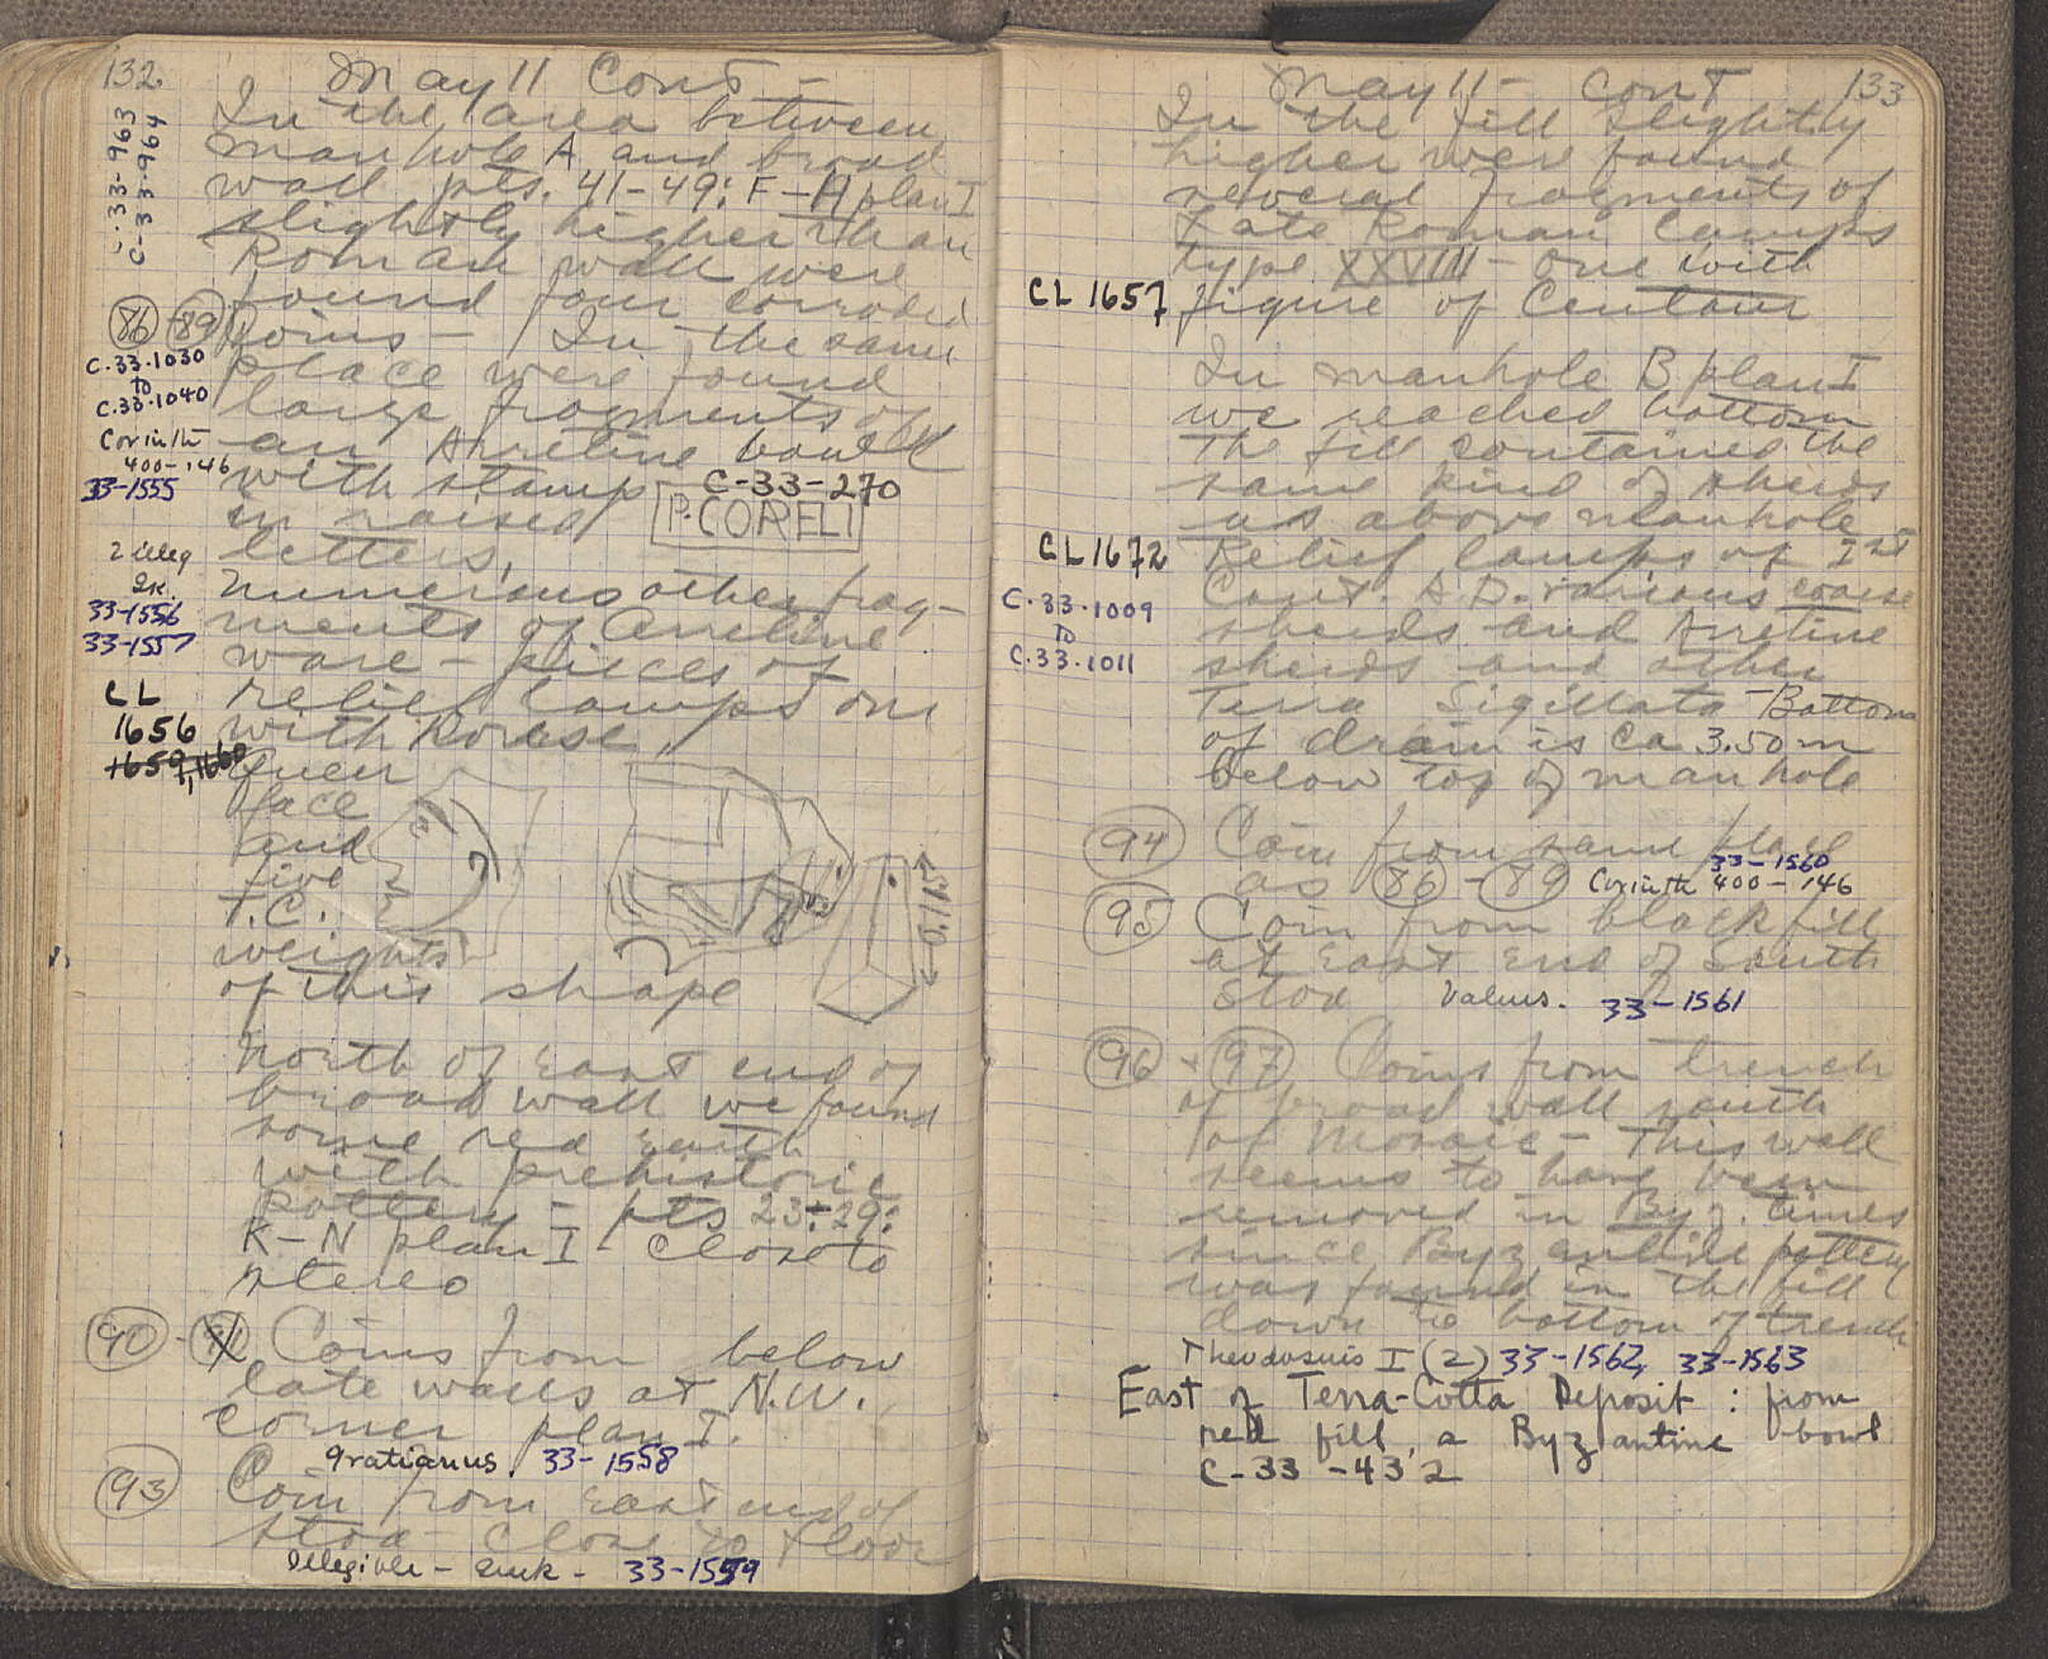 132
May 11 Cont -
C-33-963
C-33-964
In the area between
manhole A and broad
wall pts. 41-49: F-H plan I
slightly higher than
Roman wall were
found four corroded
(86)-(89) Coins - In the same
C.33.1030
to
C.33.1040
place were found
large fragments of
Corinth
400-146
33-1555
an Arretine bowl
with stamp C-33-270
in raised P.CORELI
letters,
2 illeg
Gk.
33-1556
33-1557
numerous other frag-
ments of Arretine
ware - pieces of
CL
1656
1659, 1660
relief lamps one
with
face
and
five
T.C.
weights
of this shape
0.115
North of East end of
broad wall we found
some red earth
with prehistoric
pottery - pts 23-29:
K-N plan I - Close to
stereo
(90)-(91) Coins from below
late walls at N.W.
corner plan I.
Gratianus. 33-1558
(93) Coin from East end of
stoa close to floor
Illegible - Greek - 33-1559
May 11 - cont
133
In the fill slightly
higher were found
several fragments of
Late Roman Lamps
type XXVIII - one with
CL 1657 figure of Centaur
In manhole B plan I
we reached bottom
The fill contained the
same kind of sherds
as above manhole
CL 1672 Relief lamps of Ist
C.33.1009
to
C.33.1011
Cent. A.D. various coarse
sherds and Arretine
sherds and other
Terra Sigillata - Bottom
of drain is ca 3.50 m
below top of manhole
(94) Coin from same place
as (86)-(89) Corinth 400-146
33-1560
(95) Coin from black fill
at East End of South
Stoa Valens. 33-1561
(96)-(97) Coins from trench
of broad wall south
of Mosaic - This wall
seems to have been
removed in Byz. times
since Byzantine pottery
was found in the fill
down to bottom of trench
Theodosius I (2) 33-1562, 33-1563
East of Terra-Cotta Deposit: from
red fill, a Byzantine bowl
C-33-432